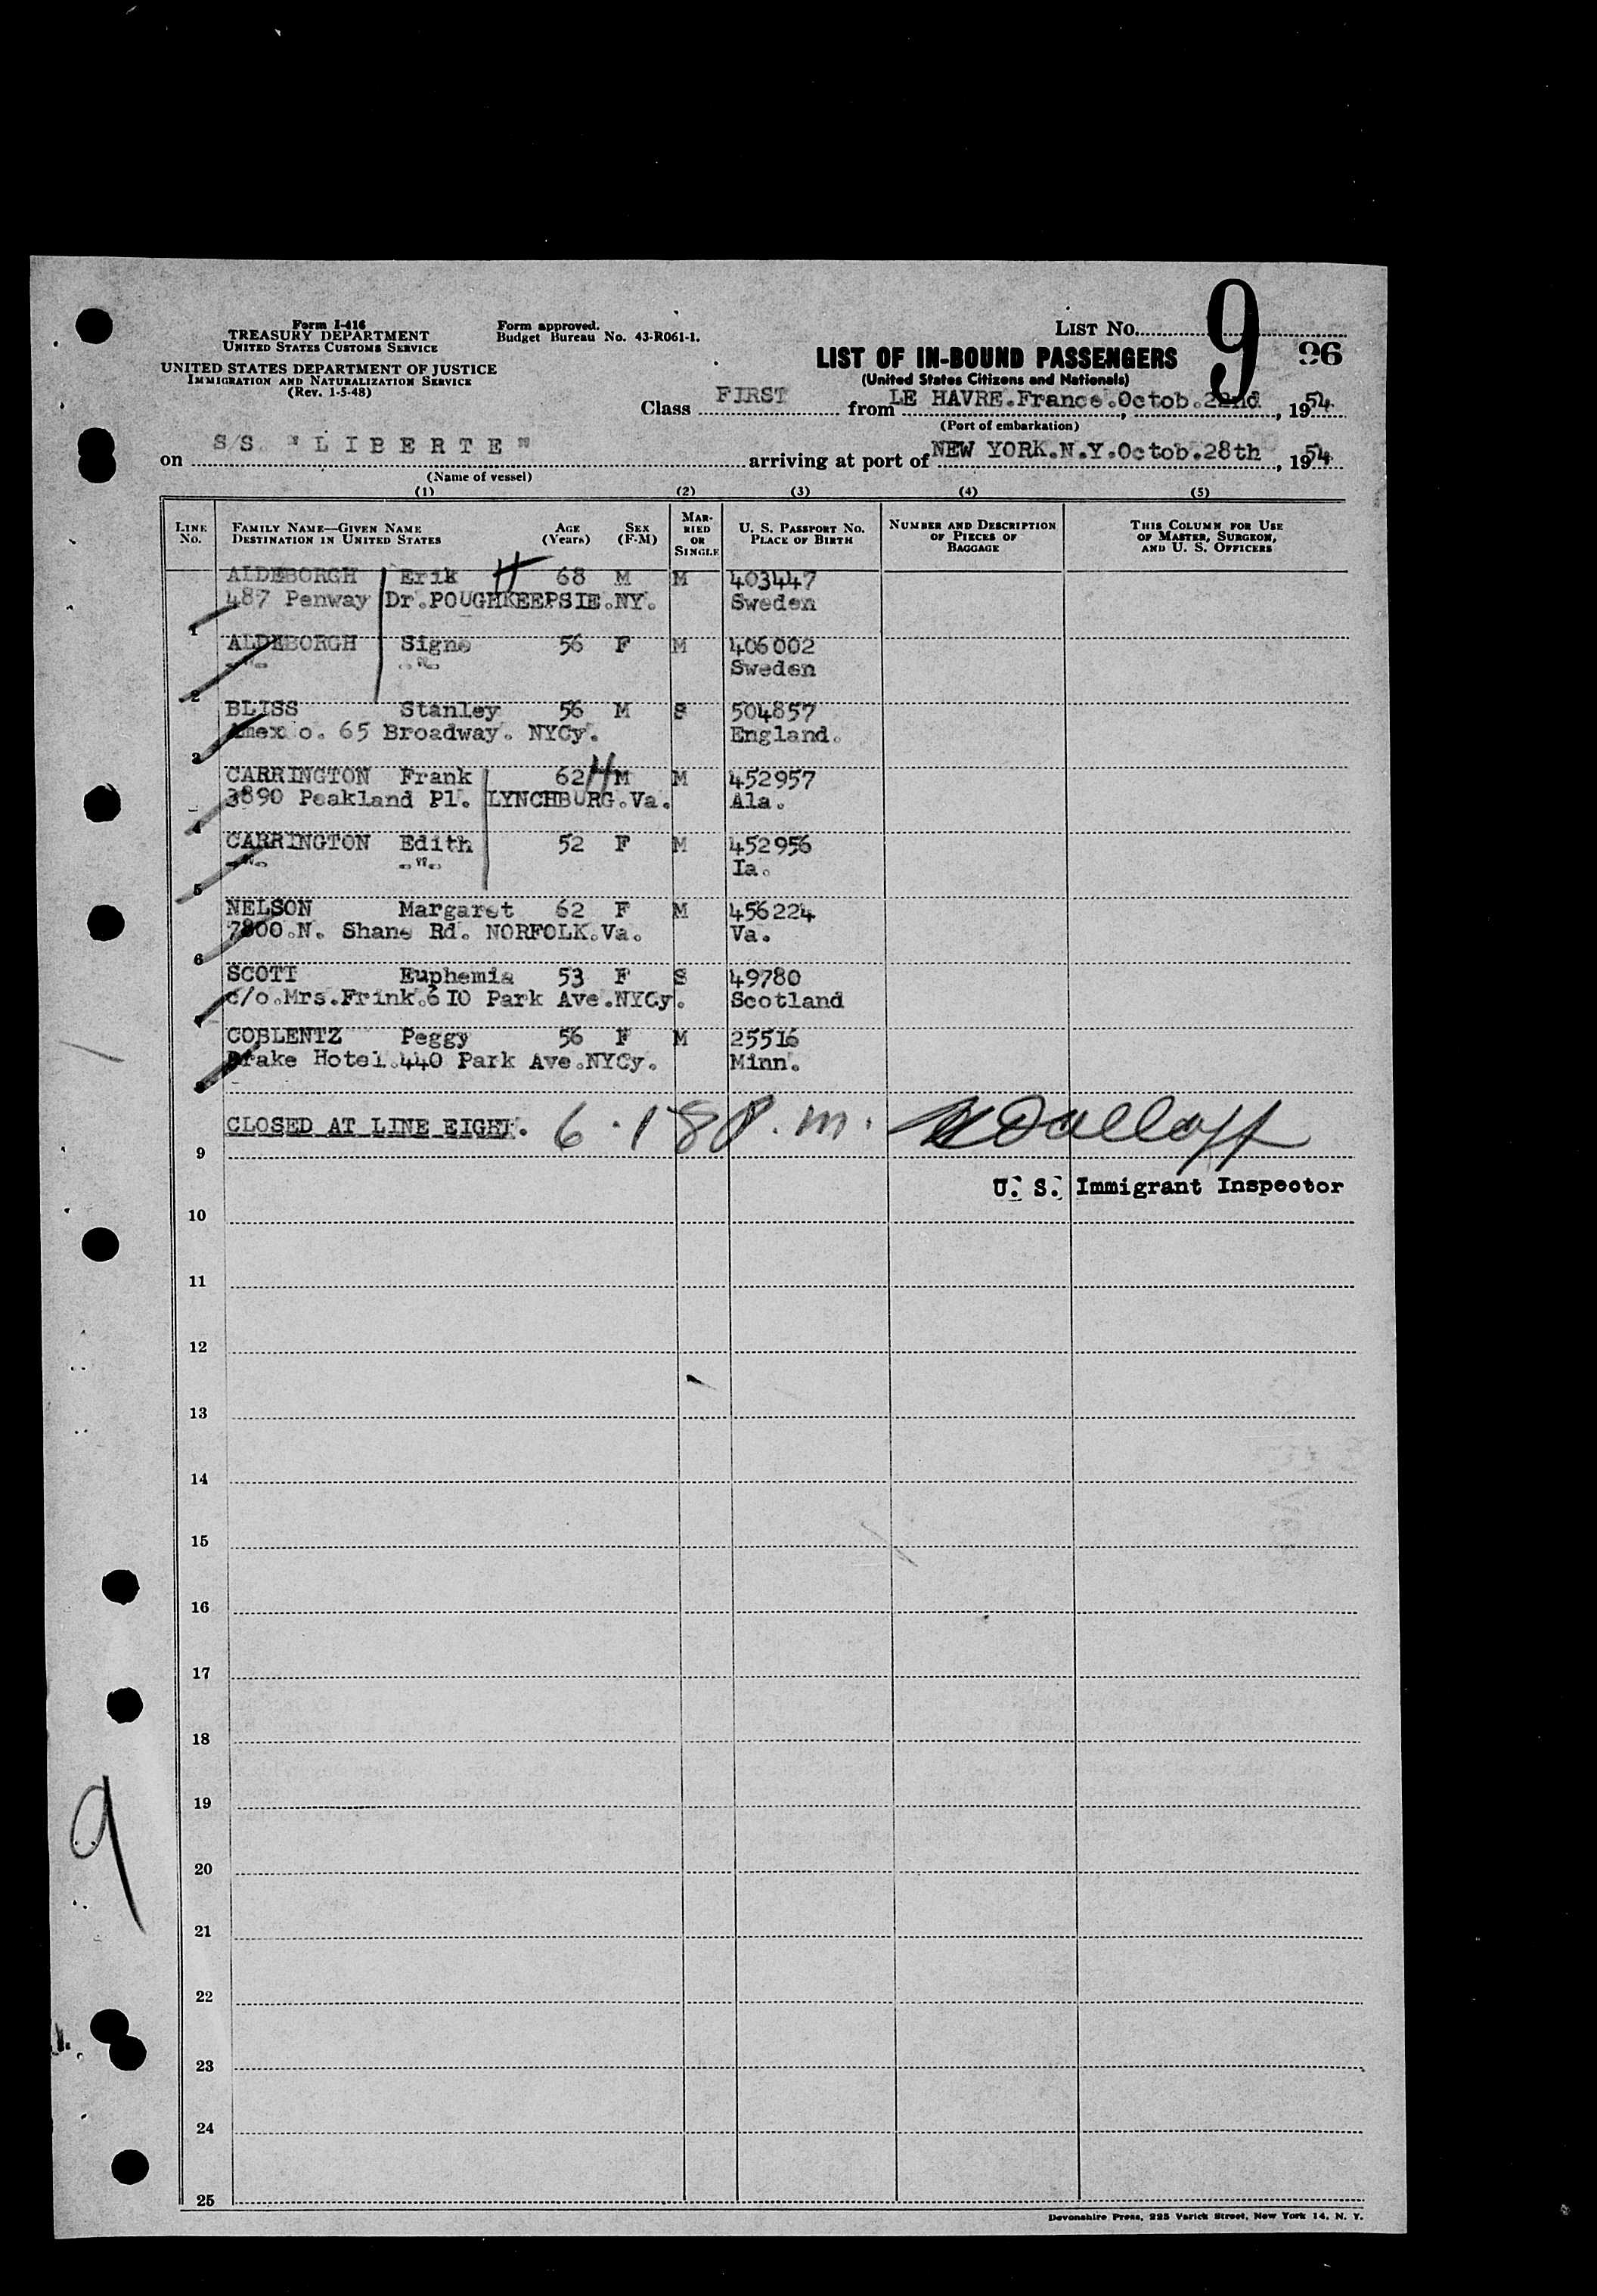 Form I-416
TREASURY DEPARTMENT
UNITED STATES CUSTOMS SERVICE
UNITED STATES DEPARTMENT OF JUSTICE
IMMIGRATION AND NATURALIZATION SERVICE
(Rev. 1-5-48)
Form approved.
Budget Bureau No. 43-R061-1.
LIST No. 9 96
LIST OF IN-BOUND PASSENGERS
(United States Citizens and Nationals)
Class FIRST from LE HAVRE.France.Octob.22nd, 1954
(Port of embarkation)
on S/S. "LIBERTE" arriving at port of NEW YORK.N.Y.Octob.28th, 1954
(Name of vessel)
(1) (2) (3) (4) (5)
LINE No. FAMILY NAME—GIVEN NAME DESTINATION IN UNITED STATES AGE (Years) SEX (F-M) MARRIED OR SINGLE U. S. PASSPORT No. PLACE OF BIRTH NUMBER AND DESCRIPTION OF PIECES OF BAGGAGE THIS COLUMN FOR USE OF MASTER, SURGEON, AND U. S. OFFICERS
ALDEBORGH Erik H 68 M M 403447
487 Penway Dr.POUGHKEEPSIE.NY. Sweden
1
ALDEBORGH Signe 56 F M 406002
-"- -"- Sweden
2
BLISS Stanley 56 M S 504857
Amex o. 65 Broadway. NYCy. England.
3
CARRINGTON Frank 62 H M M 452957
3890 Peakland Pl. LYNCHBURG.Va. Ala.
4
CARRINGTON Edith 52 F M 452956
-"- -"- Ia.
5
NELSON Margaret 62 F M 456224
7800.N. Shane Rd. NORFOLK.Va. Va.
6
SCOTT Euphemia 53 F S 49780
c/o.Mrs.Frink.610 Park Ave.NYCy. Scotland
7
COBLENTZ Peggy 56 F M 25516
Drake Hotel.440 Park Ave.NYCy. Minn.
8
CLOSED AT LINE EIGHT. 6.18 P.m.
9
U. S. Immigrant Inspector
10
11
12
13
14
15
16
17
18
19
9
20
21
22
23
24
25
Devonshire Press, 225 Varick Street, New York 14, N. Y.